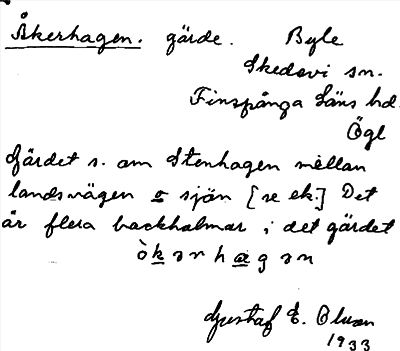 Åkerhagen. gärde. Byle
Skedevi sn.
Finspånga läns hd.
Ögl
Gärdet s. om Stenhagen mellan
landsvägen o sjön [se ek.] Det
är flera backholmar i det gärdet
òkərhagən
Gustaf E. Olsson
1933